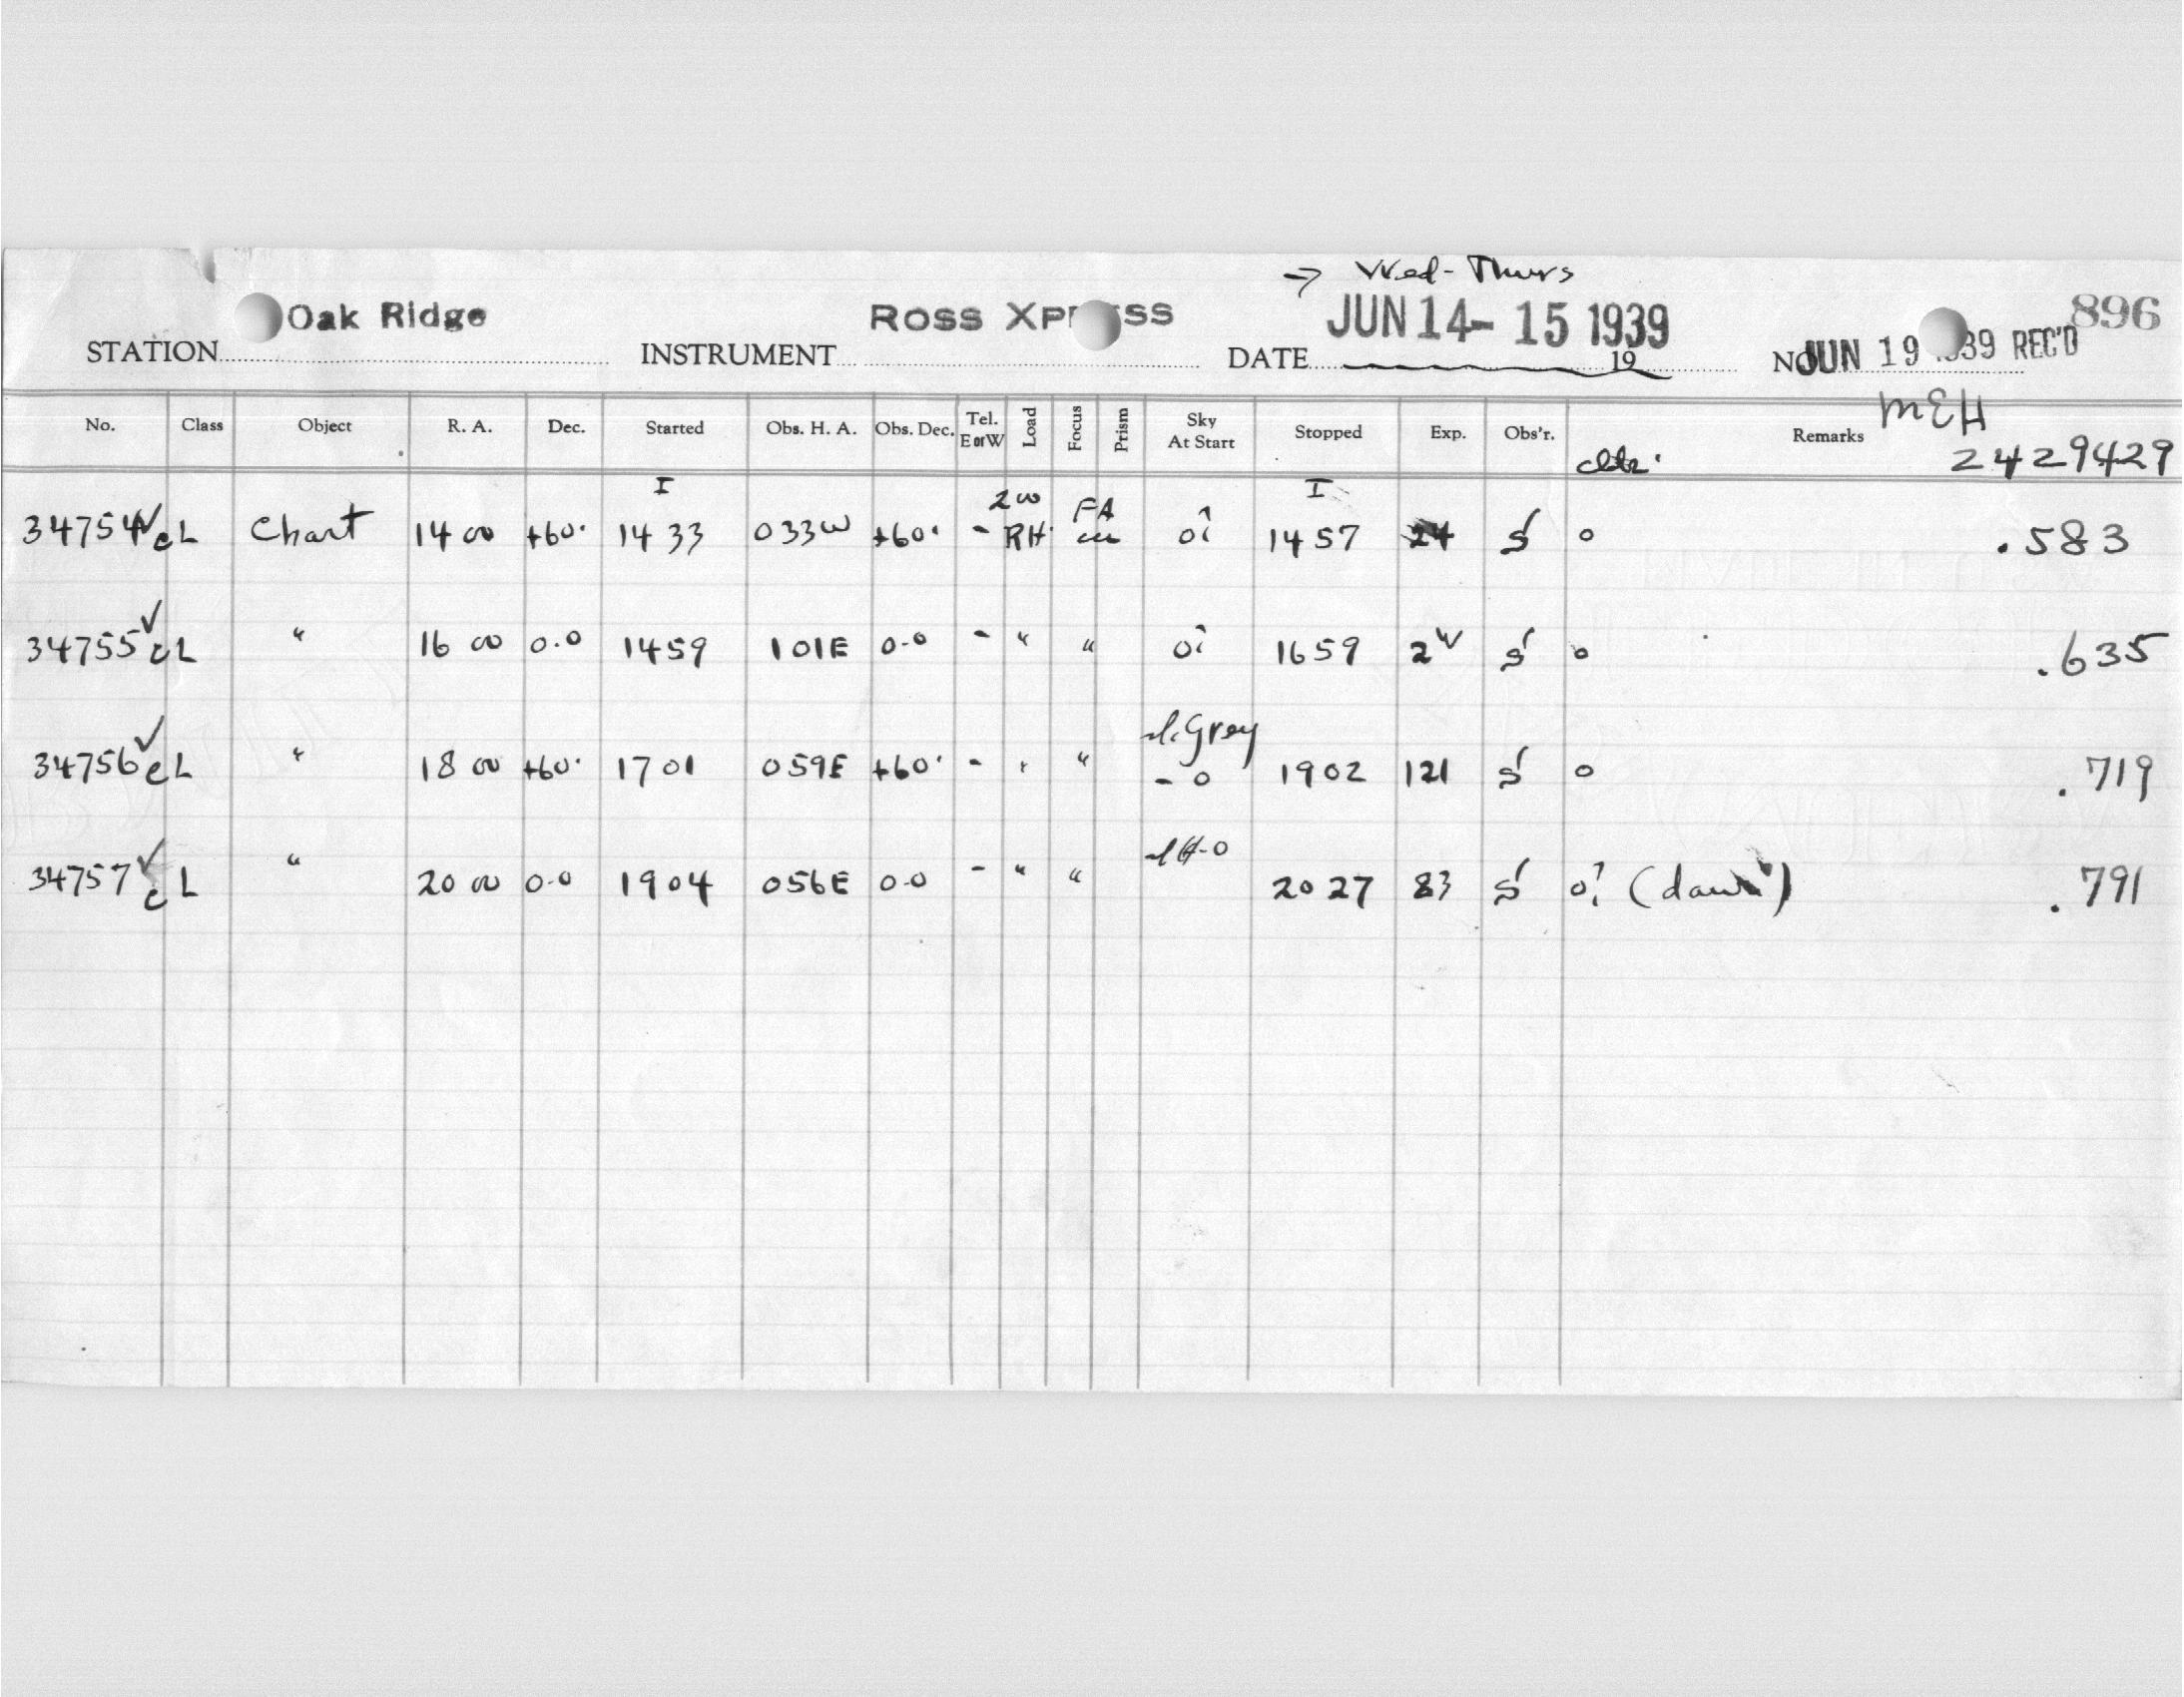 → Wed - Thurs
STATION Oak Ridge INSTRUMENT ROSS XPRESS DATE JUN 14 - 15 1939 19 NO. JUN 19 1939 REC'D 896
MEH
No. Class Object R. A. Dec. Started Obs. H. A. Obs. Dec. Tel. E or W Load Focus Prism Sky At Start Stopped Exp. Obs'r. Remarks 2429429
I 2 w FA I
34754 ✓ cL Chart 14 00 +60· 14 33 033W +60· - RH 01 1457 24 S 0 .583
34755 ✓ cL " 16 00 0.0 1459 101E 0-0 - " " 01 1659 2 S 0 .635
Grey
34756 ✓ cL " 18 00 +60· 1701 059E +60· - " " - 0 1902 121 S 0 .719
34757 ✓ cL " 20 00 0-0 1904 056E 0-0 - " " 20 27 83 S 0? (dawn) .791